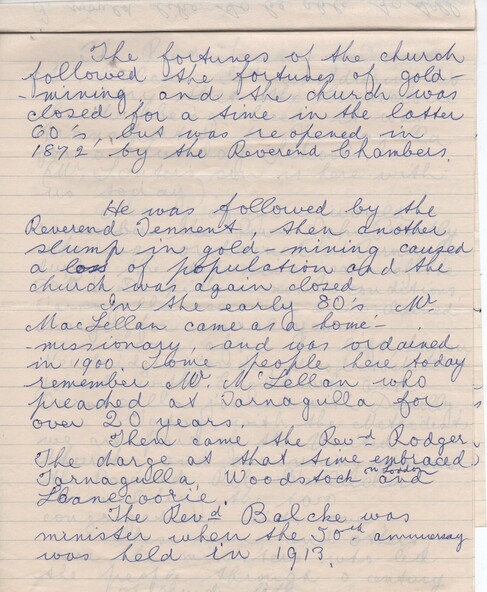 The fortunes of the church
followed the fortunes of gold-
-mining and the church was
closed for a time in the latter
60's, but was reopened in
1872, by the Reverend Chambers.
He was followed by the
Reverend Tennent, then another
slump in gold-mining caused
a loss of population and the
church was again closed
In the early 80's Mr
MacLellan came as a home-
-missionary, and was ordained
in 1900. Some people here today
remember Mr. McLellan who
preached at Tarnagulla for
over 20 years.
Then came the Revd Rodger.
The charge at that time embraced
Tarnagulla, Woodstock on Loddon and
Laanecoorie.
The Revd Balcke was
minister when the 50th anniversary
was held in 1913.